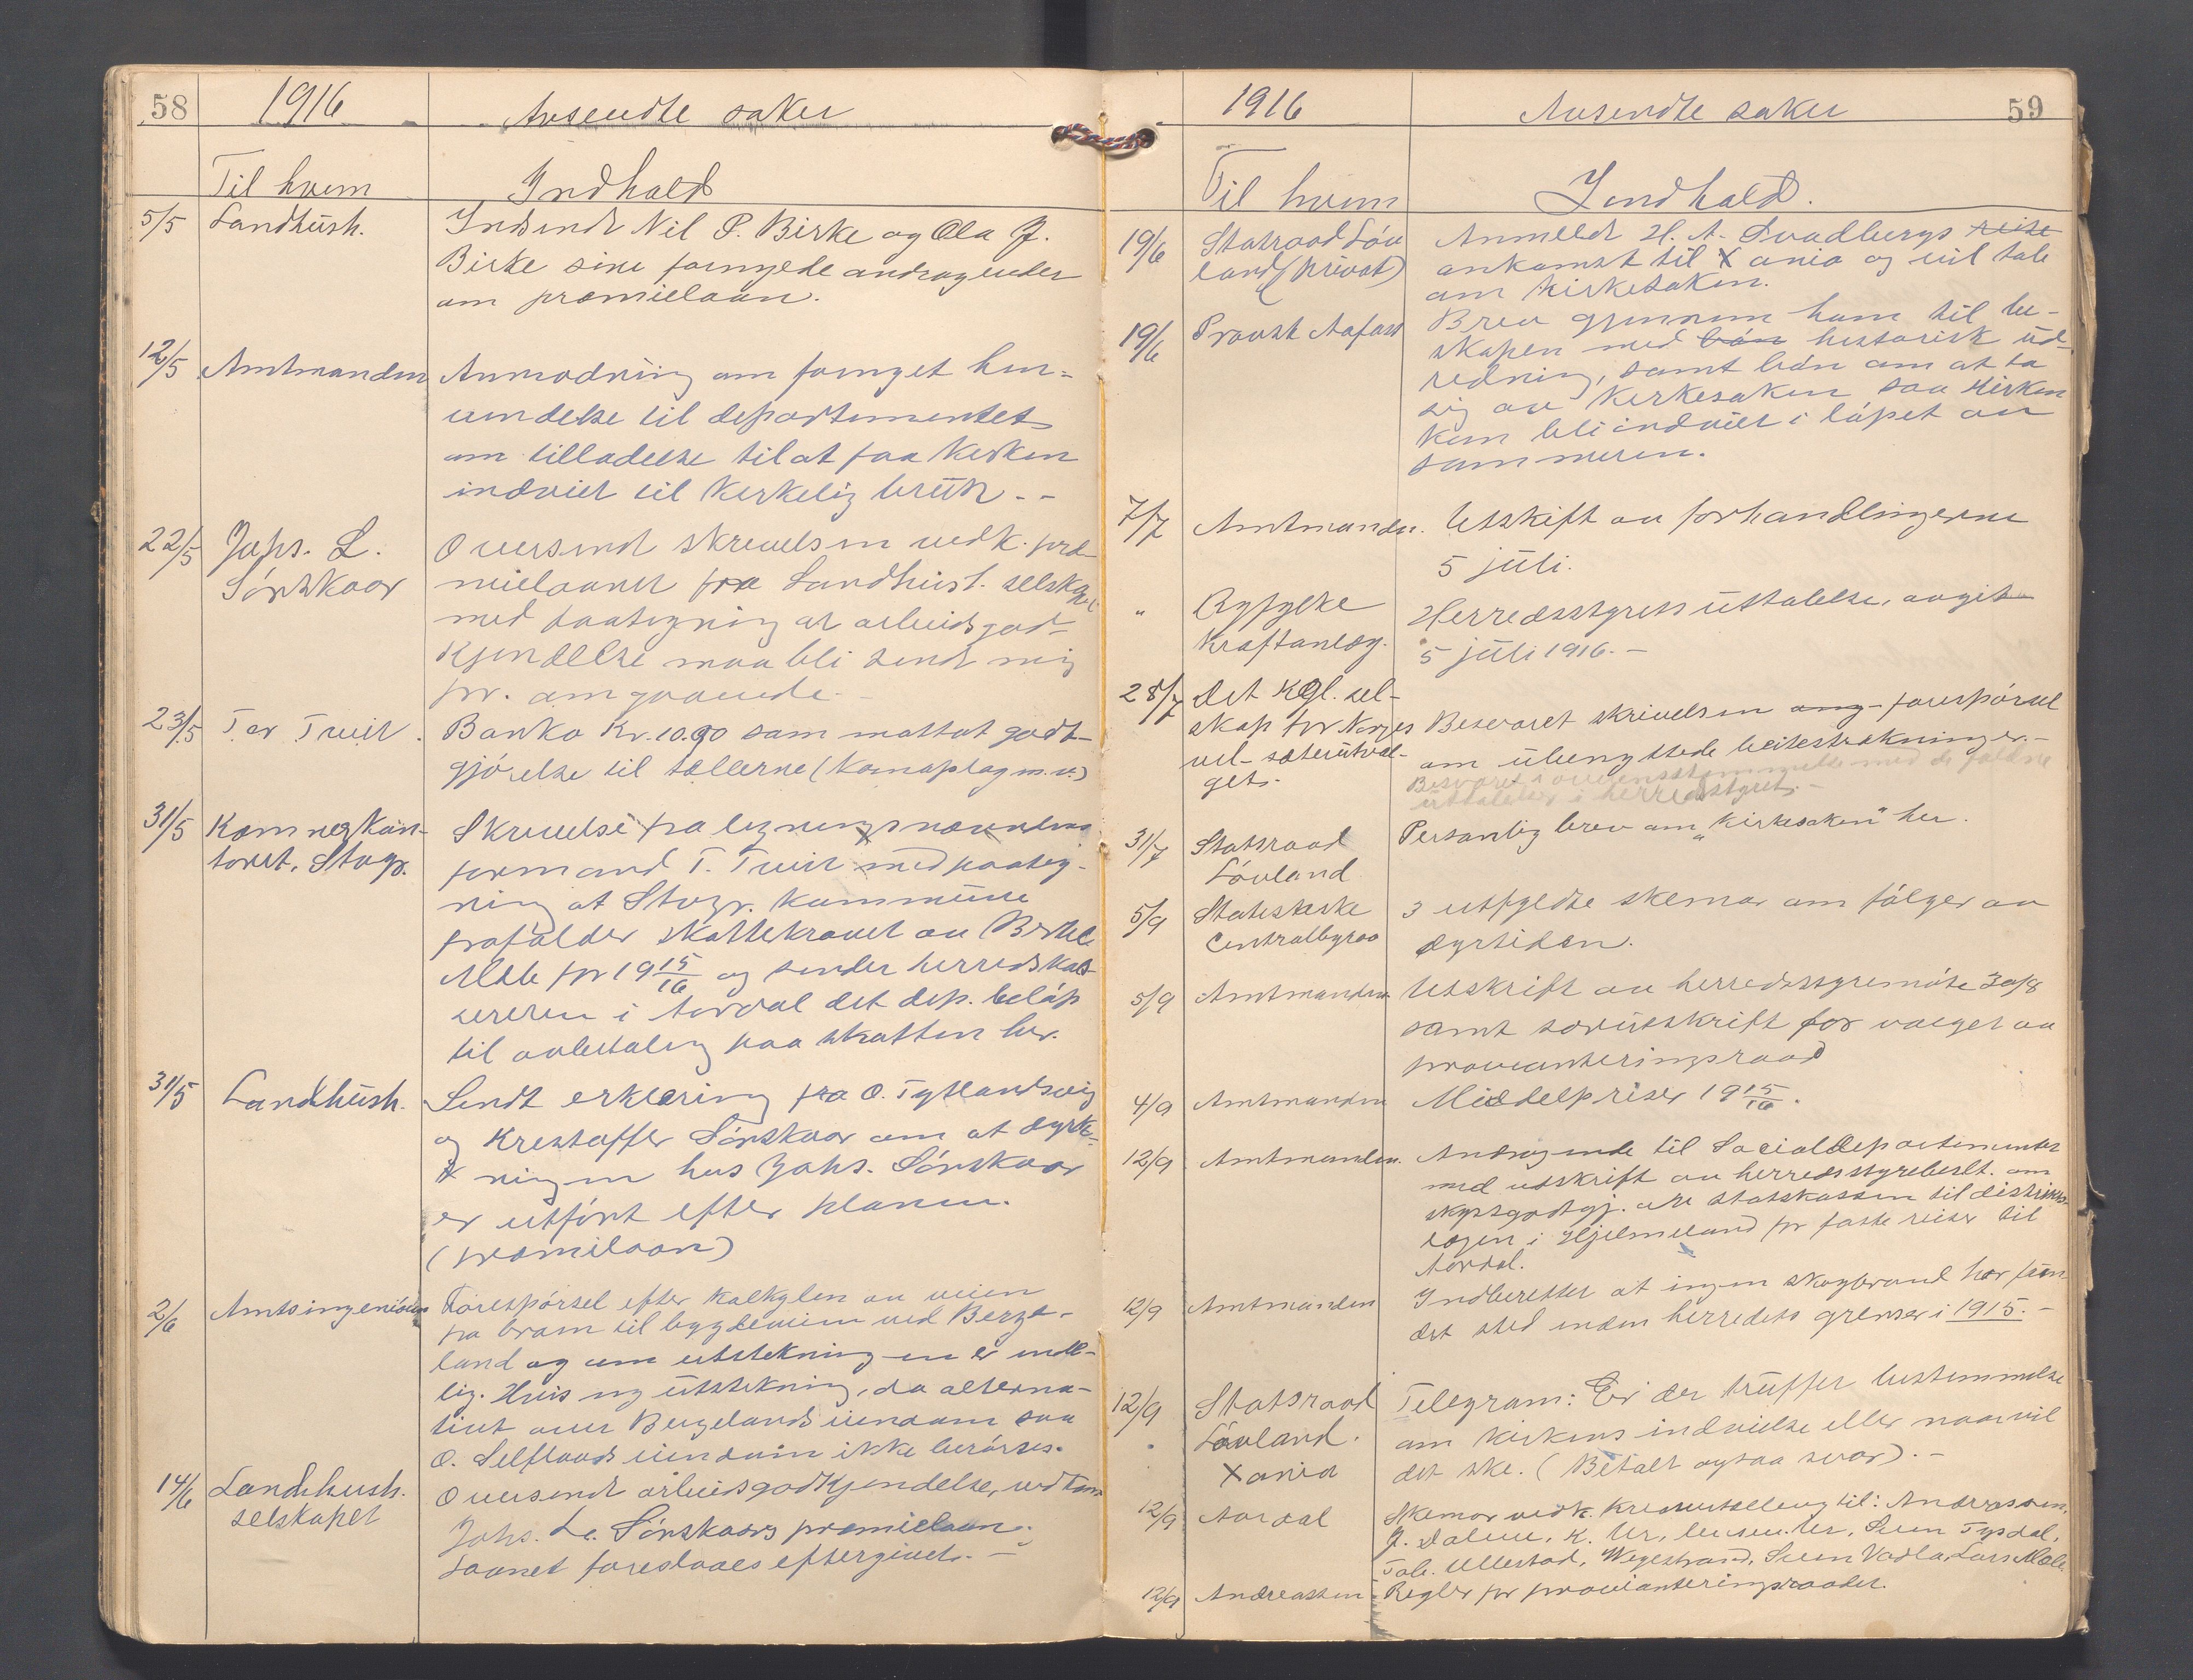 58 1916 Avsendte saker
Til hvem Indhold
5/5 Landhush. Indsendt Nil P. Birke og Ola J.
Birke sine fornyede andragender
om præmielaan.
12/5 Amtmanden Anmodning om fornyet hen-
vendelse til departementet
om tilladelse til at faa kirken
indviet til kirkelig bruk. -
22/5 Johs. L. Oversendt skrivelsen vedk. præ-
Sørskaar mielaanet fra Landhush. selskapet
med paategning at arbeidsgod-
kjendelse maa bli sendt mig
pr. omgaaende. -
23/5 Tor Tveit. Banko Kr. 10.90 som mottat godt-
gjørelse til tællerne (kornoplag m.v.)
31/5 Kæmnerkon- Skrivelse fra ligningsnævndens
toret, Stvgr. formand T. Tveit med paateg-
ning at Stvgr. kommune
frafalder skattekravet av Bertel
Mæle for 1915/16 og sender herredskas-
sereren i Aardal det dep. beløp
til avbetaling paa skatten her.
31/5 Landhush. Sendt erklæring fra O. Tytlandsvig
og Kristoffer Sørskaar om at dyrk-
ningen hos Johs. Sørskaar
er utført efter planen.
(præmielaan)
2/6 Amtsingeniøren Forespørsel efter kalkylen av veien
fra Bram til bygdeveien ved Berge-
land og om utstikningen er ende-
lig. Hvis ny utstikning, da alterna-
tivt over Bergelands eiendom saa
O. Selstaads eiendom ikke berørses.
14/6 Landhush. Oversendt arbeidsgodkjendelse, vedkom.
selskapet Johs. L. Sørskaars præmielaan.
Laanet foreslaaes eftergivet. -
1916 Avsendte saker 59
Til hvem Indhold.
19/6 Statsraad Løv Anmeldt H. A. Svadbergs reise
land (privat) ankomst til Xania og vil tale
om kirkesaken.
19/6 Provst Aafoss Brev gjennem ham til bi-
skopen med bøn historisk ut-
redning, samt bøn om at ta
sig av kirkesaken saa kirken
kan bli indviet i løpet av
sommeren.
7/7 Amtmanden. Utskrift av forhandlingerne
5 juli.
" Ryfylke Herredsstyrets uttalelse, avgit
kraftanlæg. 5 juli 1916. -
28/7 Det Kgl. sel-
skap for Norges Besvaret skrivelsen ang. forespørsel
vel- sæterutval- om ubenyttede beitestrækninger. -
get. Besvaret i overensstemmelse med de faldne
uttalelser i herredsstyret. -
31/7 Statsraad Personlig brev om "kirkesaken" her.
Løvland
5/9 Statistiske 3 utfyldte skemar om følger av
Centralbyraa dyrtiden.
5/9 Amtmanden. Utskrift av herredsstyremøte 30/8
samt særutskrift for valget av
provianteringsraad
4/9 Amtmanden Middelpriser 1915/16.
12/9 Amtmanden. Andragende til Socialdepartementet
med utskrift av herredsstyrebeslt. om
skyssgodtgj. av statskassen til distrikts-
lægen i Hjelmeland for faste reiser til
Aardal.
12/9 Amtmanden Indberettet at ingen skogbrand har fun-
det sted inden herredets grenser i 1915. -
12/9 Statsraad Telegram: Er der truffet bestemmelse
Løvland. om kirkens indvielse eller naar vil
Xania det ske. (Betalt ogsaa svar). -
12/9 Aardal Skemar vedk. kreaturtælling til: Andreassen,
J. Dalene, K. Sven Tysdal,
Tob. Ullestad, Wegestrand, Sven Vadla, Lars Mæle.
12/9 Andreassen Regler for provianteringsraadet.